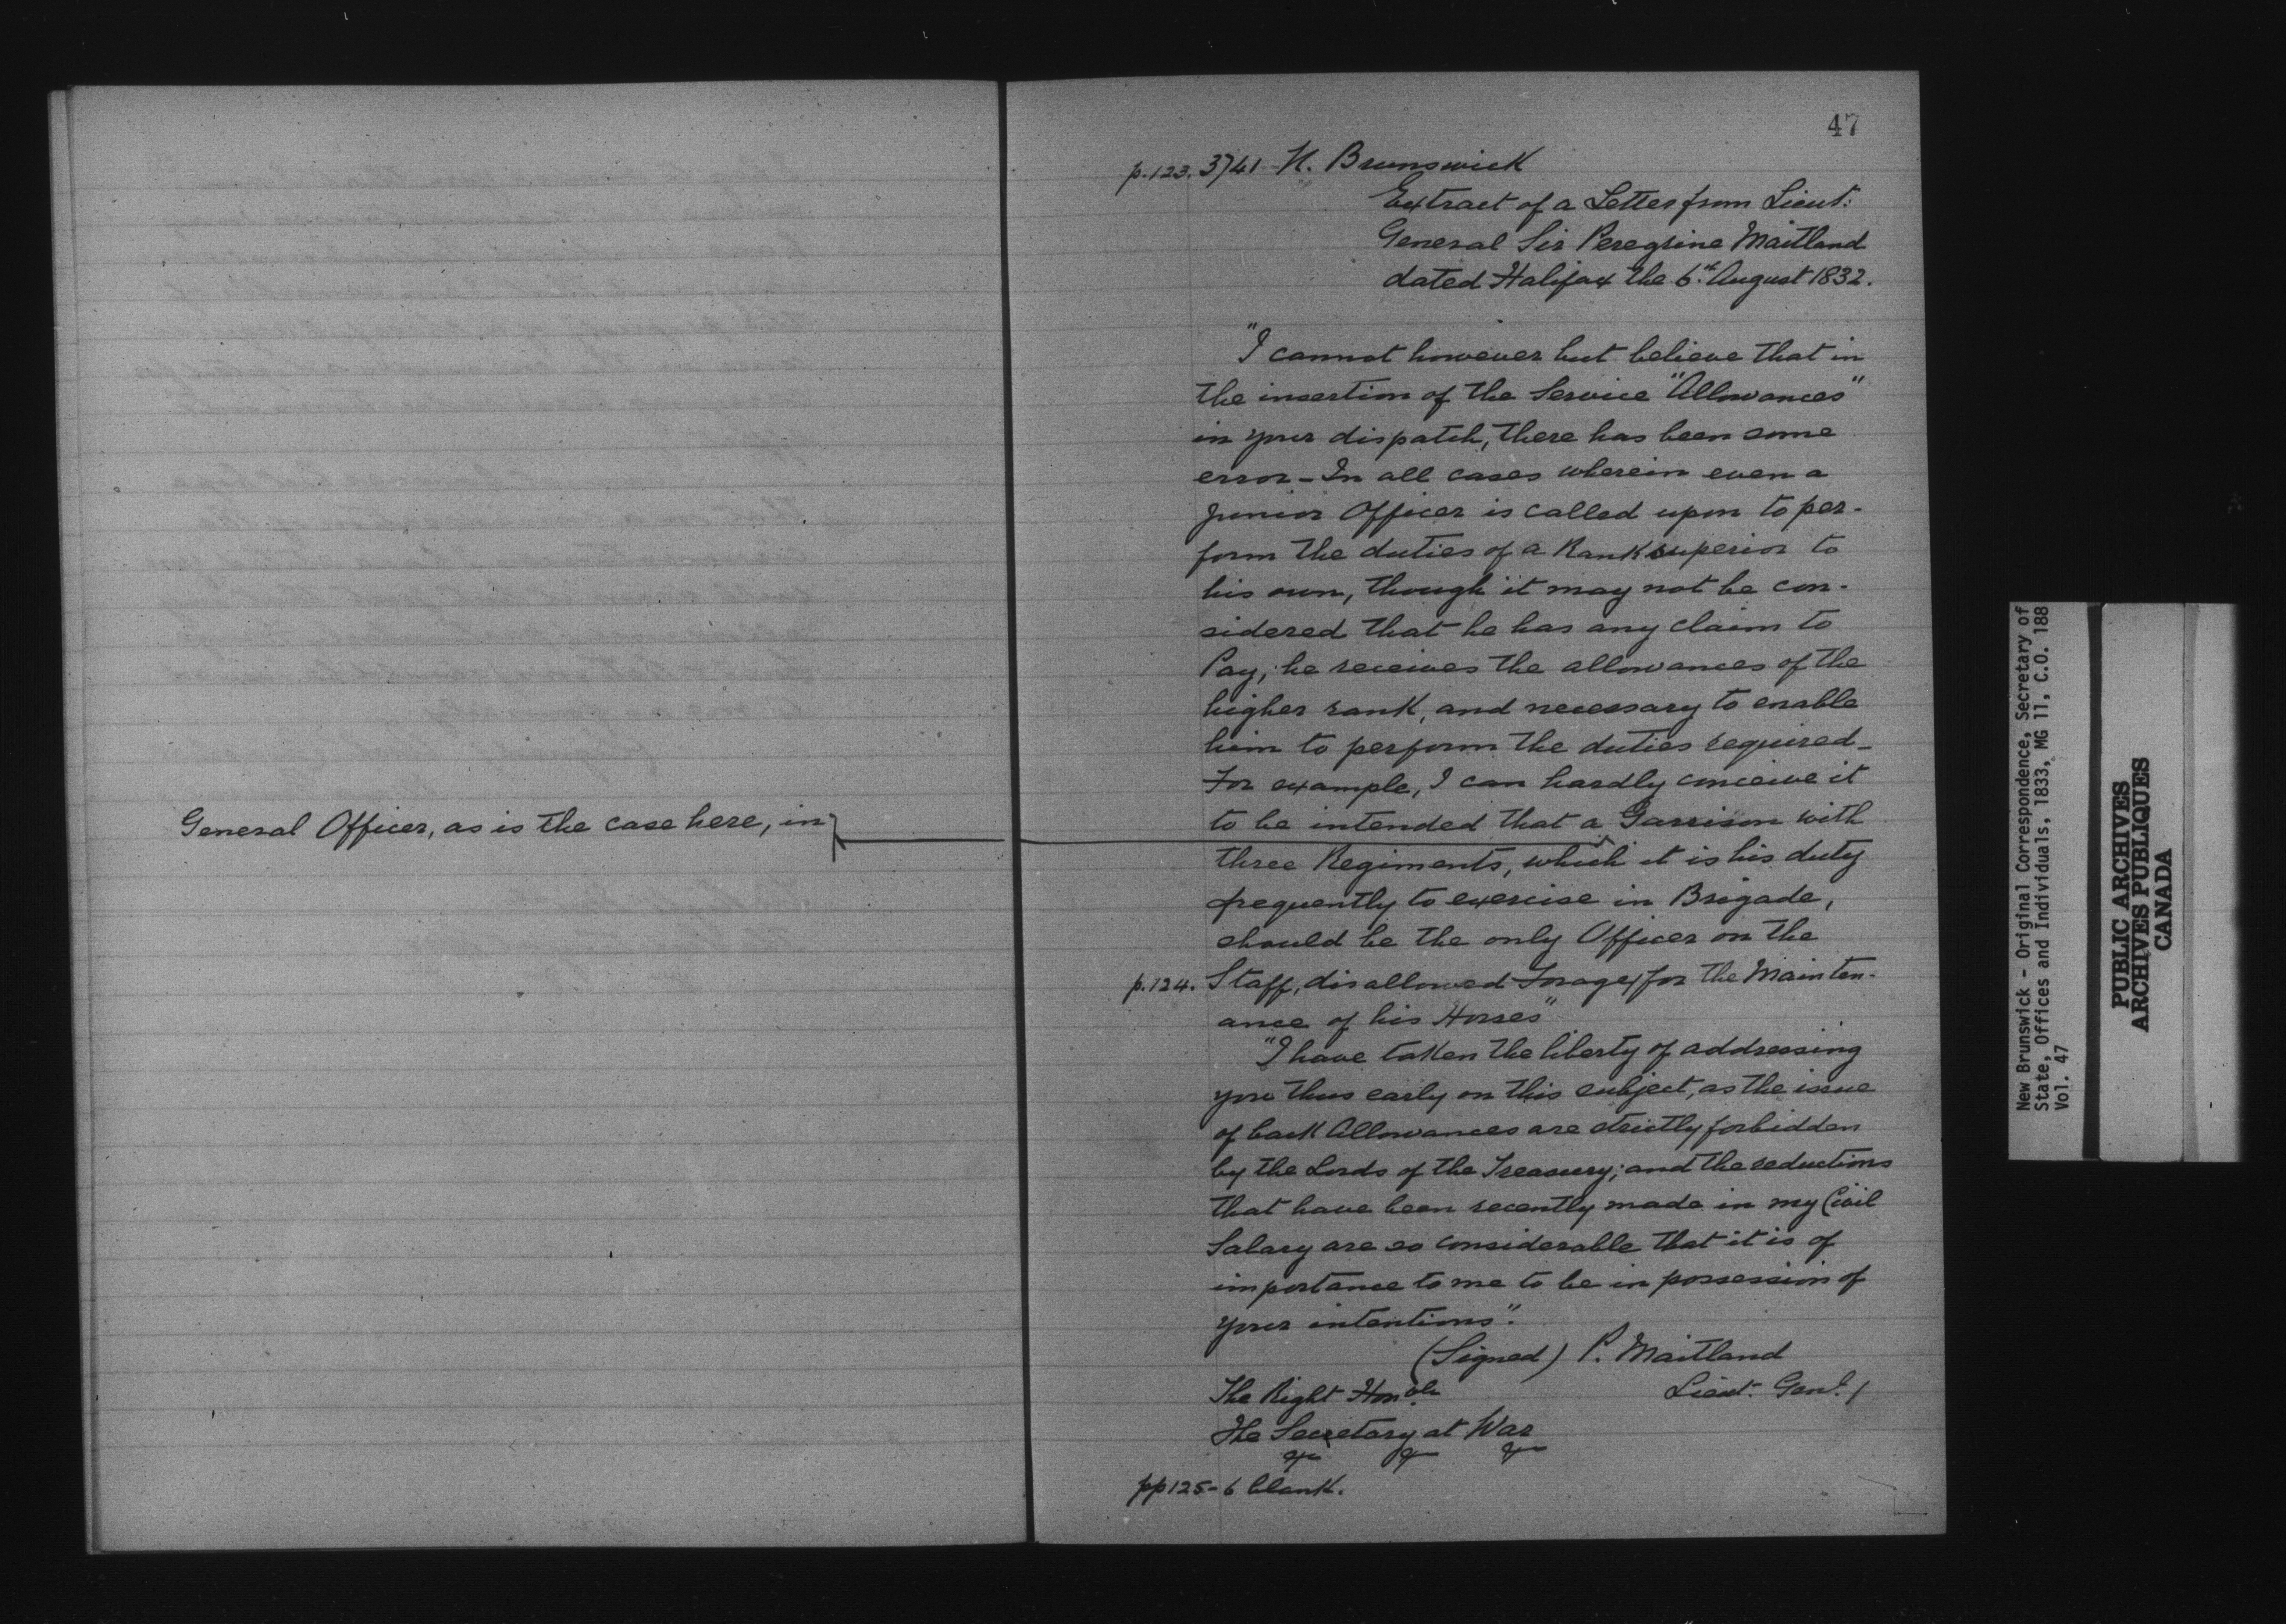 General Officer, as is the case here, in
47
p.123. 3741 N. Brunswick
Extract of a Letter from Lieut:
General Sir Peregrine Maitland
dated Halifax the 6th August 1832.
"I cannot however but believe that in
the insertion of the Service "Allowances"
in your dispatch, there has been some
error – In all cases wherein even a
junior Officer is called upon to per-
form the duties of a Rank superior to
his own, though it may not be con-
sidered that he has any claim to
Pay, he receives the allowances of the
higher rank, and necessary to enable
him to perform the duties required –
For example, I can hardly conceive it
to be intended that a Garrison with
three Regiments, which it is his duty
frequently to exercise in Brigade,
should be the only Officer on the
p.124. Staff, disallowed Forage for the Mainten-
ance of his Horses"
"I have taken the liberty of addressing
you thus early on this subject, as the issue
of back Allowances are strictly forbidden
by the Lords of the Treasury; and the reductions
that have been recently made in my Civil
Salary are so considerable that it is of
importance to me to be in possession of
your intentions".
(Signed) P. Maitland
Lieut. Genl.
The Right Honble
The Secretary at War
pp 125-6 blank.
New Brunswick - Original Correspondence, Secretary of
State, Offices and Individuals, 1833, MG 11, C.O. 188
Vol. 47
PUBLIC ARCHIVES
ARCHIVES PUBLIQUES
CANADA